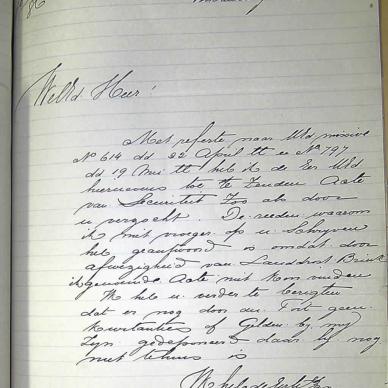 WelEd Heer!
Met referte naar UEd missive
No 614 dd 22 April ll en No 797
dd 19 Mei ll heb ik de Eer UEd
hiernevens toe te Zenden Acte
van Securiteit Zoo als door
u verzocht. De reden waarom
ik niet vroeger op u Schrijven
heb geantwoord is omdat door
afwezigheid van Landdrost Brink
ik gemeende Acte niet kon vinden
Ik heb u verder te berigten
dat er nog door den Heer geen
Kwitanties of Gelden by my
Zyn gedeponeerd daar hy nog
niet te huis is
Ik heb de Eer te Zyn